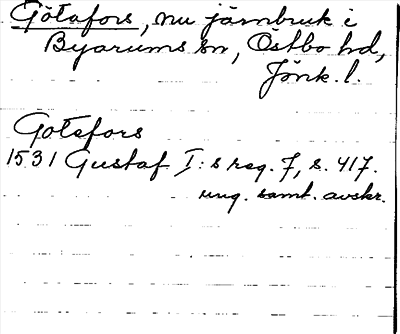 Götafors, nu järnbruk i
Byarums sn, Östbo hd,
Jönk. l.
Gotafors
1531 Gustaf I:s reg. 7, s. 417.
ung. samt. avskr.